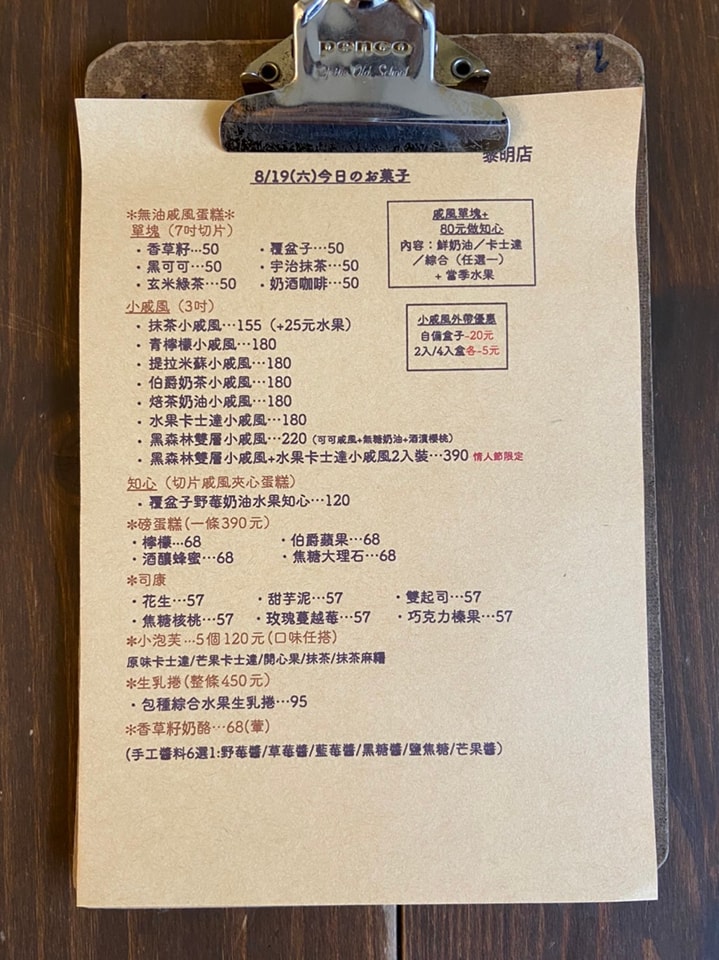 penco
黎明店
8/19(六)今日のお菓子
＊無油戚風蛋糕＊
單塊（7吋切片）
・香草籽…50 ・覆盆子…50
・黑可可…50 ・宇治抹茶…50
・玄米綠茶…50 ・奶酒咖啡…50
戚風單塊+
80元做知心
內容：鮮奶油／卡士達
／綜合（任選一）
+ 當季水果
小戚風（3吋）
・抹茶小戚風…155（+25元水果）
・青檸檬小戚風…180
・提拉米蘇小戚風…180
・伯爵奶茶小戚風…180
・焙茶奶油小戚風…180
・水果卡士達小戚風…180
・黑森林雙層小戚風…220（可可戚風+無糖奶油+酒漬櫻桃）
・黑森林雙層小戚風+水果卡士達小戚風2入裝…390 情人節限定
小戚風外帶優惠
自備盒子-20元
2入/4入盒各-5元
知心（切片戚風夾心蛋糕）
・覆盆子野莓奶油水果知心…120
＊磅蛋糕(一條390元)
・檸檬…68 ・伯爵蘋果…68
・酒釀蜂蜜…68 ・焦糖大理石…68
＊司康
・花生…57 ・甜芋泥…57 ・雙起司…57
・焦糖核桃…57 ・玫瑰蔓越莓…57 ・巧克力榛果…57
＊小泡芙…5個120元(口味任搭)
原味卡士達/芒果卡士達/開心果/抹茶/抹茶麻糬
＊生乳捲(整條450元)
・包種綜合水果生乳捲…95
＊香草籽奶酪…68(葷)
(手工醬料6選1:野莓醬/草莓醬/藍莓醬/黑糖醬/鹽焦糖/芒果醬)